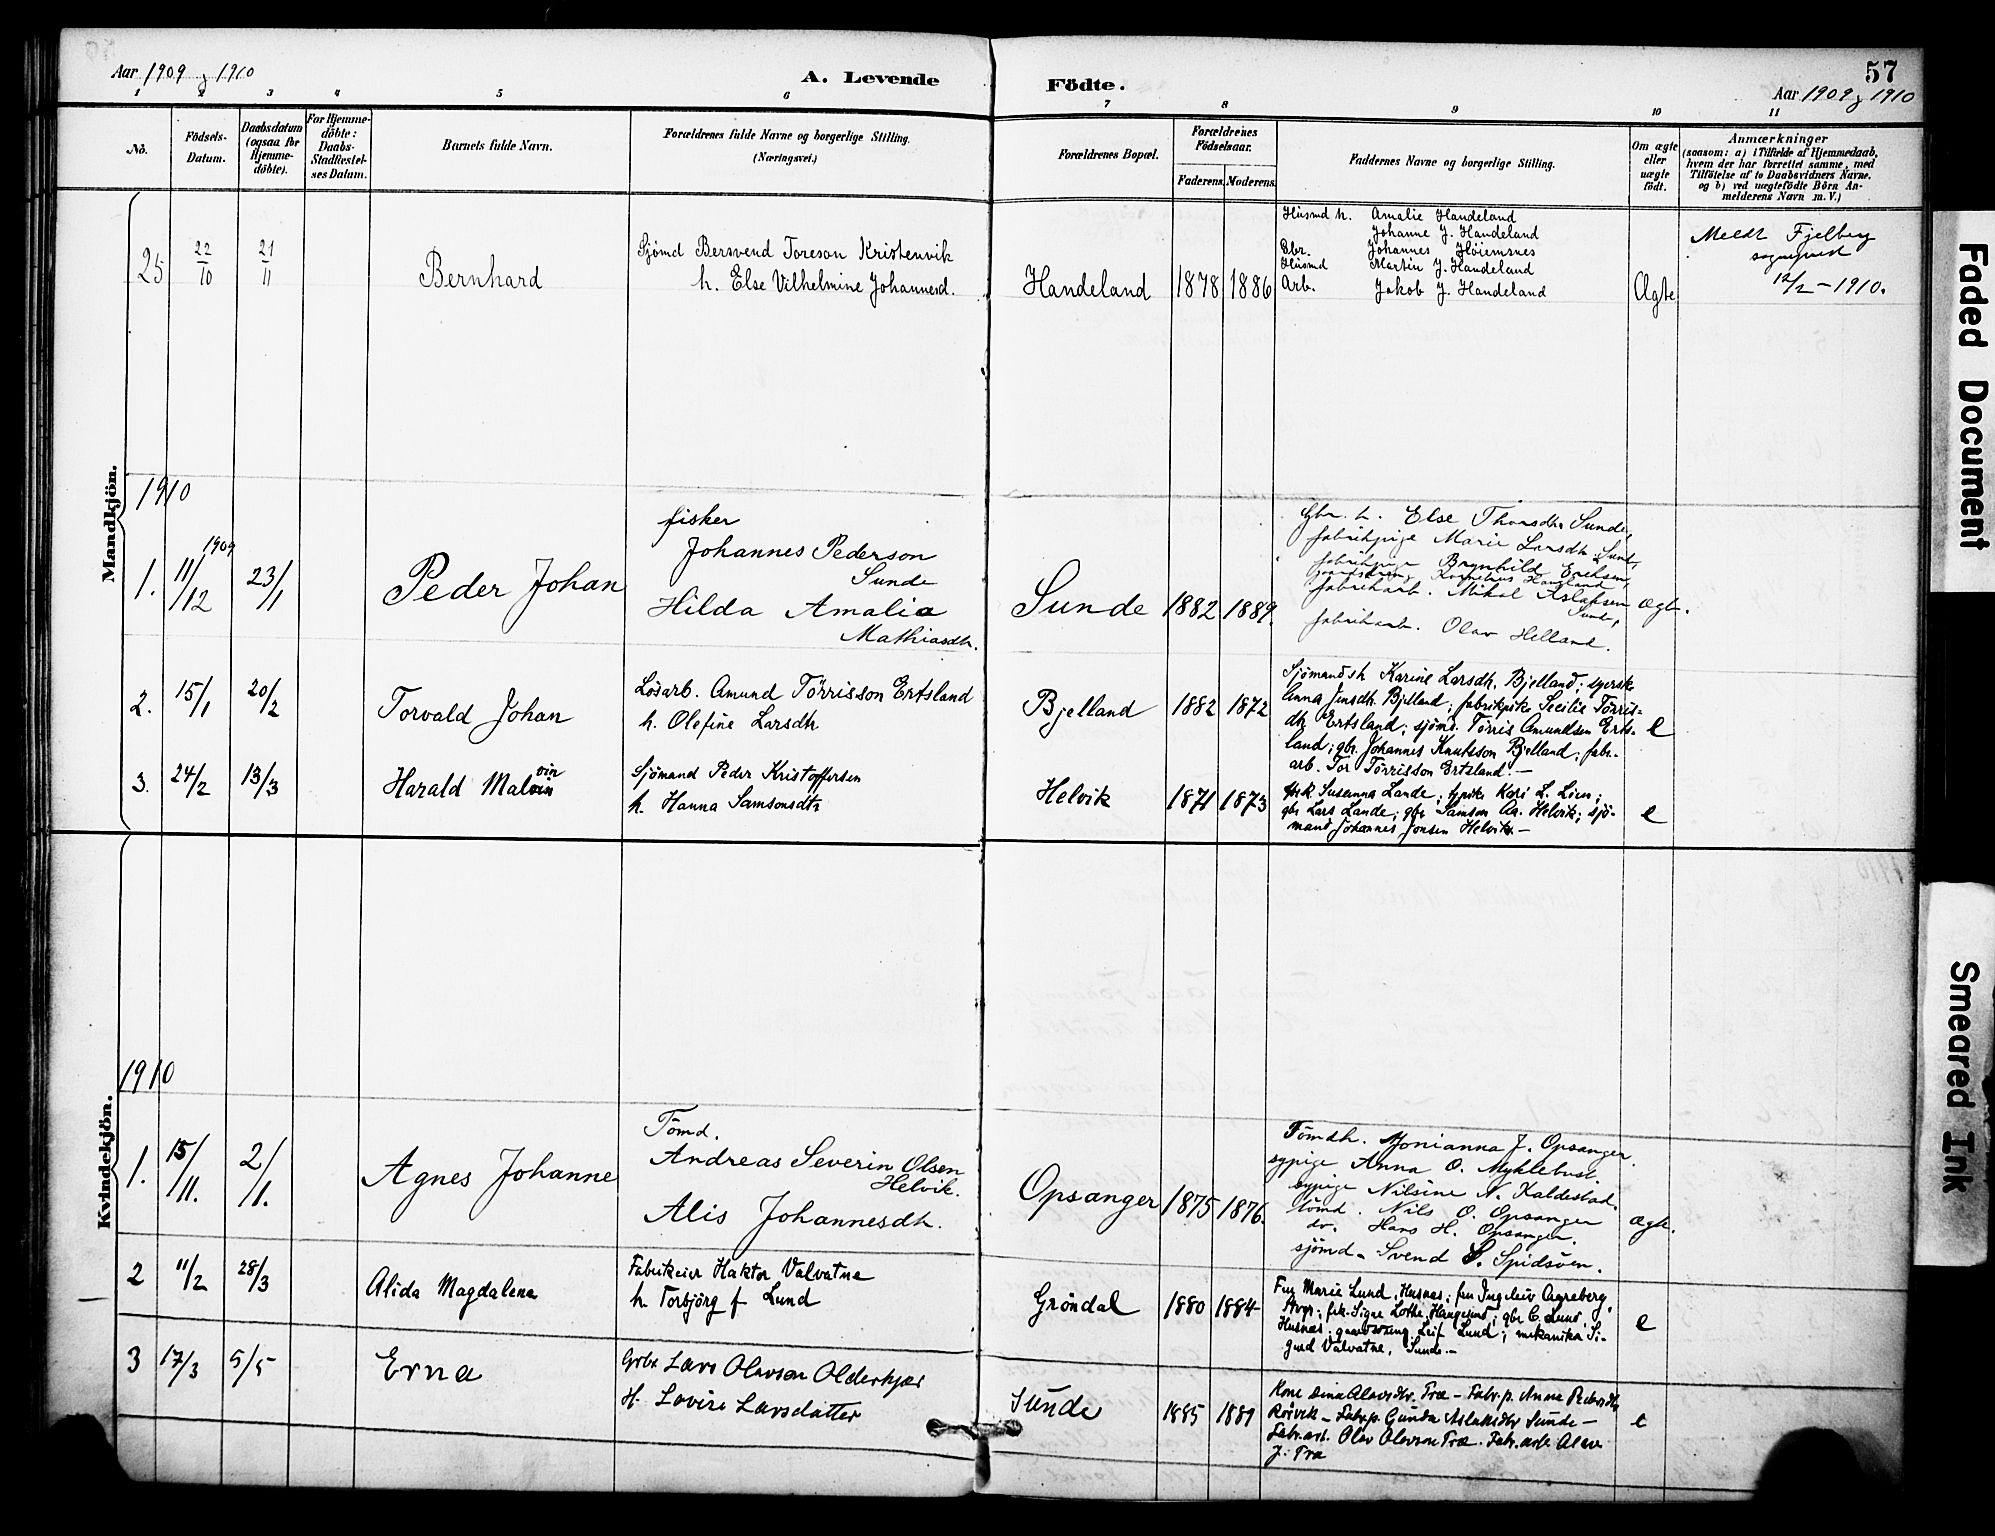 Aar 1909 og 1910
A. Levende Födte.
57
Aar 1909 og 1910
1 2 3 4 5 6 7 8 9 10 11
No.
Födsels-Datum.
Daabsdatum (ogsaa for Hjemme-döbte).
For Hjemme-döbte: Daabs-Stadfæstel-ses Datum.
Barnets fulde Navn.
Forældrenes fulde Navne og borgerlige Stilling.
(Næringsvei.)
Forældrenes Bopæl.
Forældrenes Födselsaar.
Faderens. Moderens.
Faddernes Navne og borgerlige Stilling.
Om ægte eller uægte födt.
Anmærkninger
(saasom: a) i Tilfælde af Hjemmedaab,
hvem der har forrettet samme, med
Tilföielse af to Daabsvidners Navne.
og b) ved uægtefödte Börn An-
melderens Navn m. V.)
Mandkjön.
25 22/10 21/11 Bernhard
Sjømd Bersvend Toreson Kristenvik
h. Else Vilhelmine Johannesd.
Handeland 1878 1886
Husmd h. Amalie Handeland
Johanne J. Handeland
Gbr. Johannes Høiemsnes
Husmd Martin J. Handeland
Arb. Jakob J. Handeland
Ægte
Meldt Fjelberg
sogneprest
12/2 – 1910.
1910
1. 11/12 1909 23/1 Peder Johan
fisker
Johannes Pederson
Sunde
Hilda Amalia
Mathiasdtr.
Sunde 1882 1889.
Gbr. h. Else Thorsdtr Sunde,
fabrikpige Marie Larsdtr Sunde,
fabrikpige Brynhild Eriksen,
fabrikarb. Mikal Aslaksen
Sunde,
fabrikarb. Olav Helland.
Ægte.
2. 15/1 20/2 Torvald Johan
Løsarb. Amund Tørrisson Ertsland
h. Olefine Larsdtr
Bjelland 1882 1872
Sjømandsh Karine Larsdtr. Bjelland; syerske
Anna Jensdtr. Bjelland; fabrikpike Secilie Tørris-
dtr Ertsland; sjømd. Tørris Amundsen Erts-
land; gbr. Johannes Knutsson Bjelland; fabr.-
arb. Tor Tørrisson Ertsland. –
e
3. 24/2 13/3 Harald Malvin
vin
Sjömand Peder Kristoffersen
h. Hanna Samsonsdtr
Helvik 1871 1873
Susanna Lande; Kari L. Lien;
gbr Lars Lande; gbr Samson Aa. Helvik; sjö-
mand Johannes Jonsen Helvik. –
e
Kvindekjön.
1910
1. 15/11. 2/1. Agnes Johanne
Tömd.
Andreas Severin Olsen
Helvik.
Alis Johannesdtr.
Opsanger 1875 1876.
Tömdh. Jonianna J. Opsanger.
sypige Anna O. Myklebust.
sypige Nilsine N. Kaldestad.
tömd. Nils O. Opsanger
do. Hans H. Opsanger.
sjömd. Svend S. Spidsöen.
Ægte.
2 11/2 28/3 Alida Magdalena
Fabrikeier Haktor Valvatne
h Torbjörg f Lund
Gröndal 1880 1884
Fru Marie Lund, Husnes; fru Ingeleiv Aareberg,
frk. Signe Lothe, Haugesund; gbr C. Lund,
Husnes; Leif Lund; mekaniker Si-
gurd Valvatne, Sunde. –
e
3 17/3 5/5 Erna
Grbr Lars Olavson Olderkjær
H. Lovise Larsdatter
Sunde 1885 1889
Kone Sina Alavsdtr. Træ – Fabr.p. Anna Pedersdtr
Rørvik – Fabr.p. Gunda Aslaksdtr Sunde –
Fabr.arb. Olav Olavson Træ. Fabr.arb Alav
J. Træ
e
Faded Document
Smeared Ink